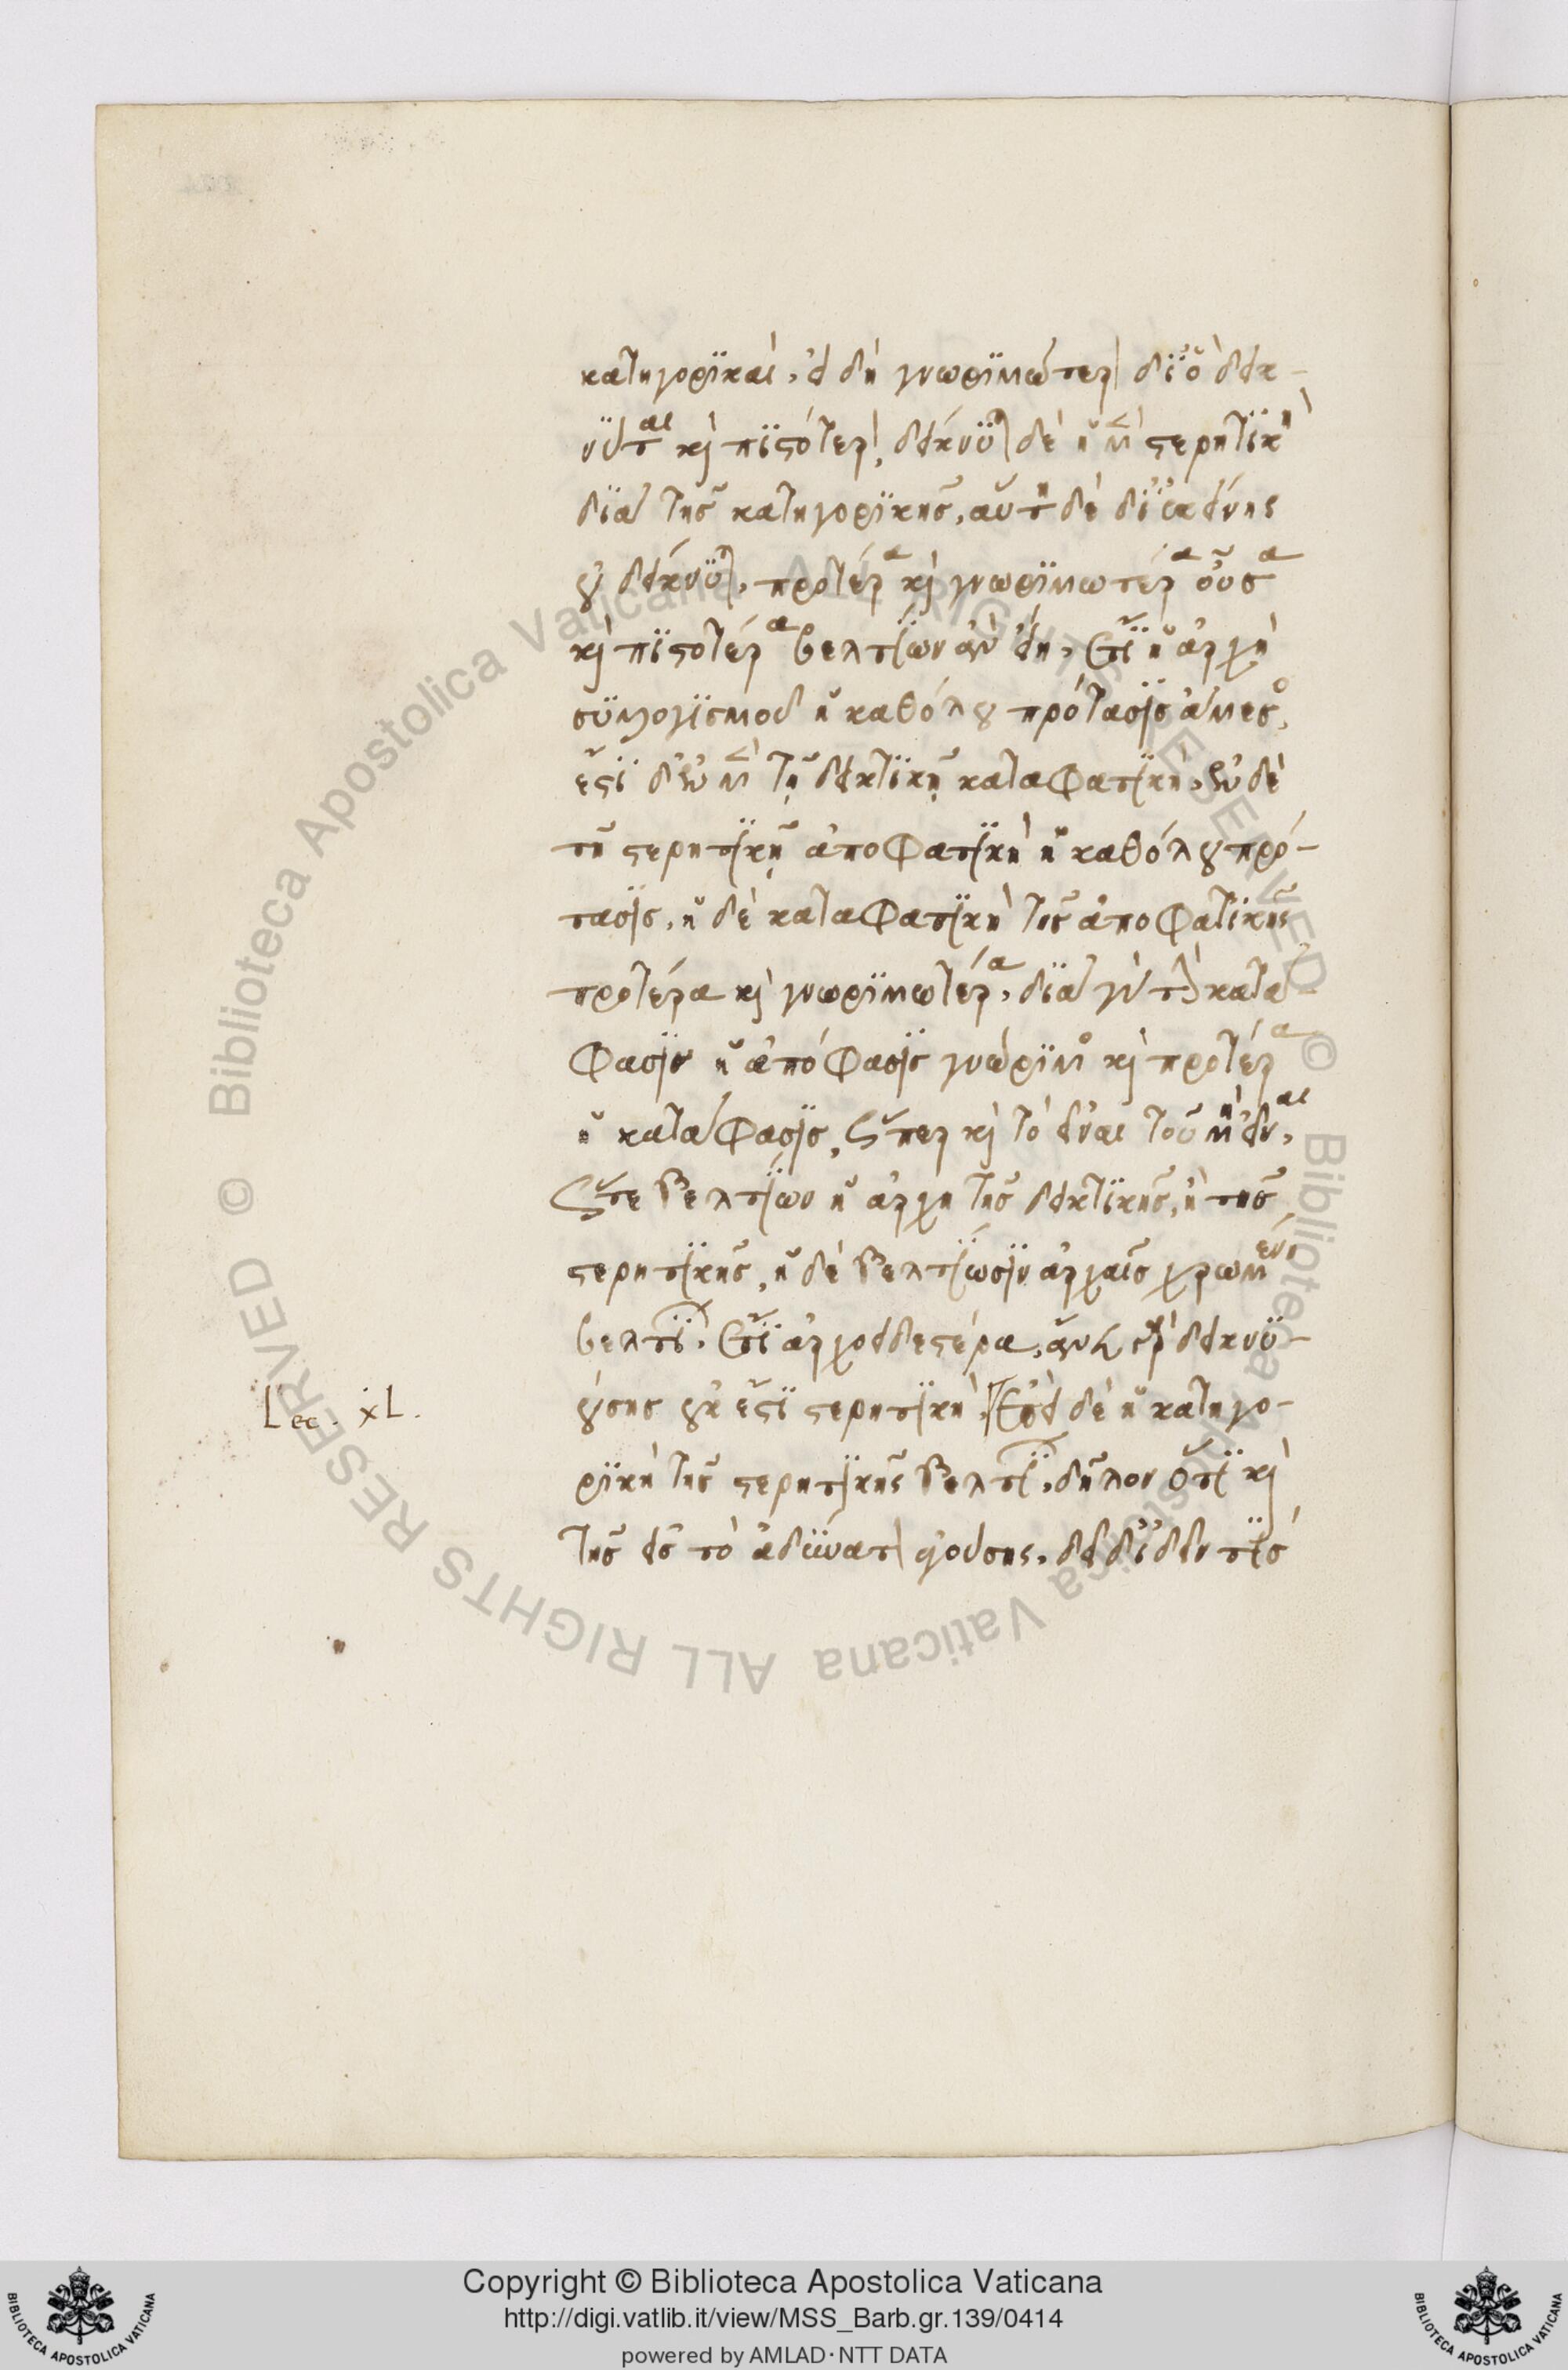 κατηγορικαί, εἰ δὴ γνωριμώτερον δι' οὗ δείκ-
νυται καὶ πιστότερον, δείκνυται δὲ ἡ μὲν στερητικὴ
διὰ τῆς κατηγορικῆς, αὕτη δὲ δι' ἐκείνης
οὐ δείκνυται, προτέρα καὶ γνωριμωτέρα οὖσα
καὶ πιστοτέρα βελτίων ἂν εἴη, ἔτι ἡ ἀρχὴ
συλλογισμοῦ ἡ καθόλου πρότασις ἄμεσος,
ἔστι δ' ἐν μὲν τῇ δεικτικῇ καταφατικὴ, ἐν δὲ
τῇ στερητικῇ ἀποφατικὴ ἡ καθόλου πρό-
τασις, ἡ δὲ καταφατικὴ τῆς ἀποφατικῆς
προτέρα καὶ γνωριμωτέρα, διὰ γὰρ τὴν κατά
φασιν ἡ ἀπόφασις γνώριμος καὶ προτέρα
ἡ κατάφασις, ὥσπερ καὶ τὸ εἶναι τοῦ μὴ εἶναι,
ὥστε βελτίων ἡ ἀρχὴ τῆς δεικτικῆς, ἢ τῆς
στερητικῆς, ἡ δὲ βελτίωσιν ἀρχαῖς χρωμένη
βελτίων. ἔτι ἀρχοειδεστέρα, ἄνευ γὰρ δεικνυ-
ούσης οὐκ ἔστι στερητικὴ. Ἐπεὶ δὲ ἡ κατηγο-
ρικὴ τῆς στερητικῆς βελτίων, δῆλον ὅτι καὶ
τῆς εἰς τὸ ἀδύνατον ἀγούσης, δεῖ δ' ἰδεῖν τίς
Lec. XL.
Copyright © Biblioteca Apostolica Vaticana
http://digi.vatlib.it/view/MSS_Barb.gr.139/0414
powered by AMLAD·NTT DATA